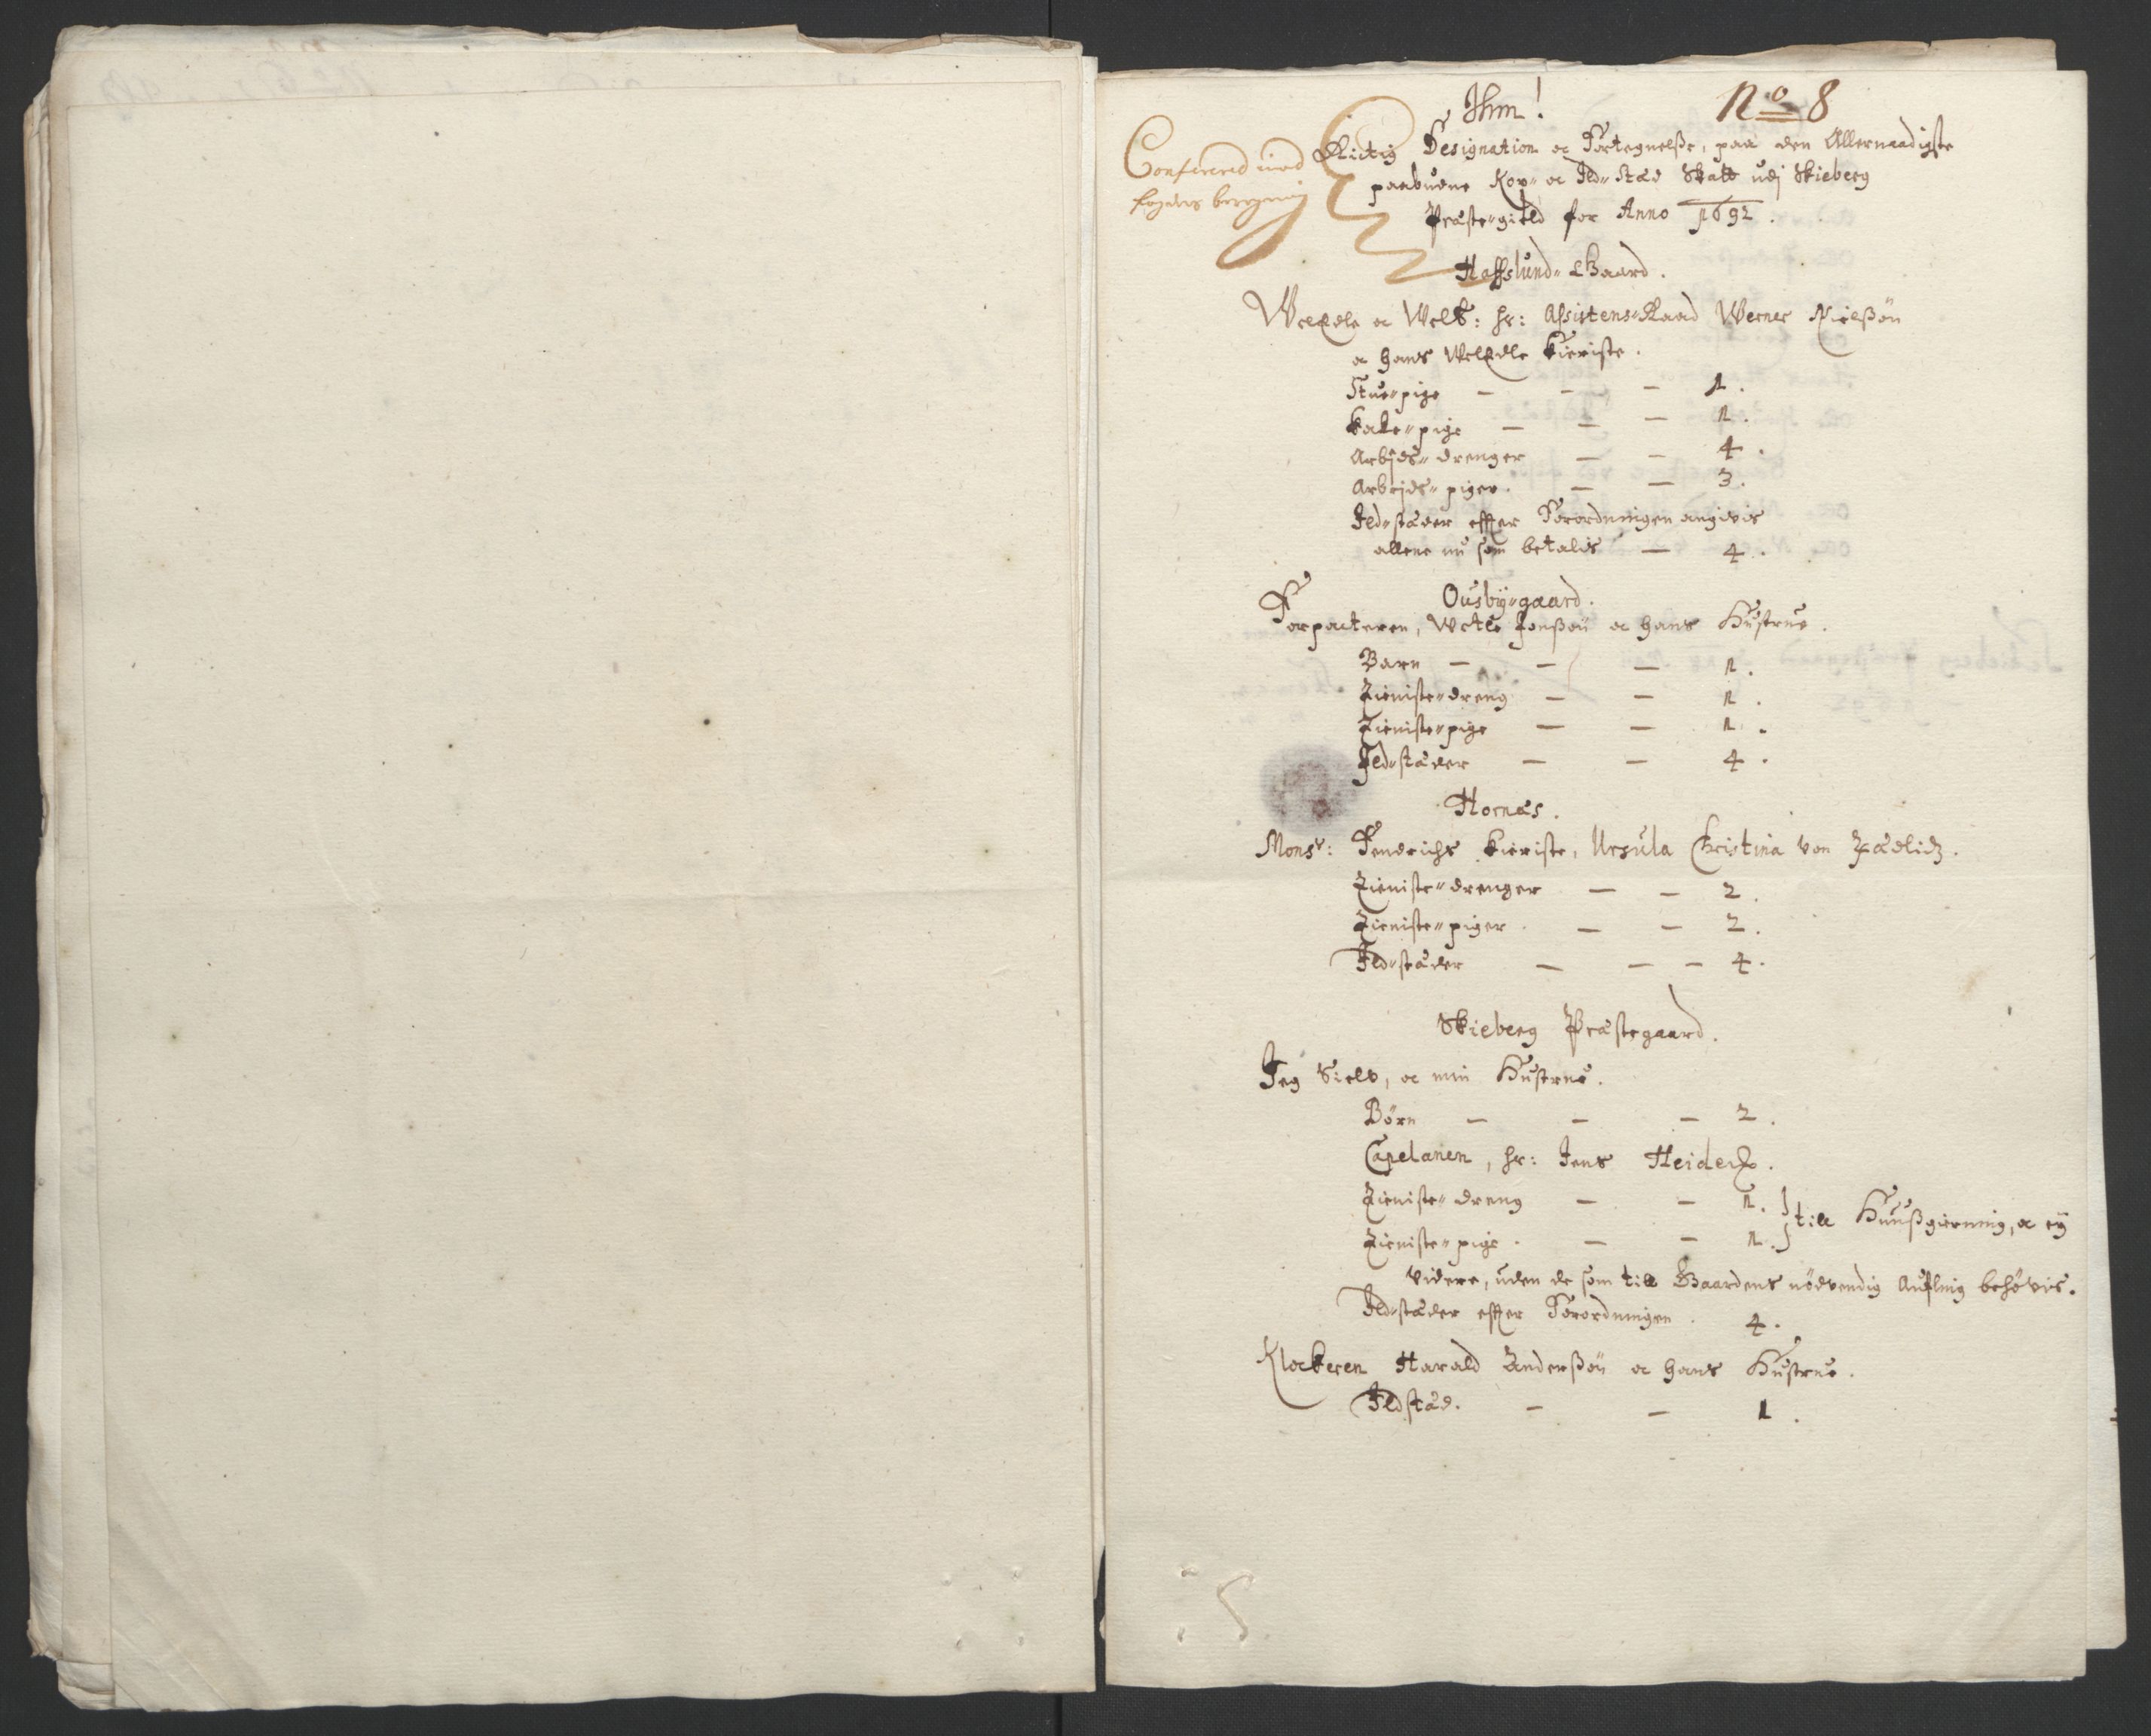 Ihm!
No 8
Conferered med
fogdens
Rictig Designation oc Fortegnelsse, paa den Allernaadigste
paabudne Kop- oc Ild-stæd Skatt udj Skieberg
Præste-gield for Anno 1692.
Haffslund-Gaard.
WelEdle oc Welb: Hr: Assistens-Raad Werner Nielssøn
oc hans WelEdle Kieriste.
Stue-pige — — — 1.
Kake-pige — — — 1.
Arbejds-drenger — — 4.
Arbejds-piger. — — 3.
Ild-stæder effter Forordningen angivis
allene nu som betalis — 4.
Ousby-gaard.
Forpacteren, Wetle Jonssøn oc hans Hustrue.
Barn — — — 1.
Tieniste-dreng — — 1.
Tieniste-pige — — 1.
Ild-stæder — — 4.
Hornæs.
Monsr: Fendrichs Kieriste, Ursula Christina von Zædlidz.
Tieniste-drenger — — 2.
Tieniste-piger. — — 2.
Ild-stæder — — — 4.
Skieberg Præstegaard.
Jeg Sielv, oc min Hustrue.
Børn — — — 2.
Capelanen, Hr: Jens
Tieniste-dreng — — 1.
Tieniste-pige. — — 1. } till Huussgierning, oc ey
videre, uden de som till Gaardens nødvendig Aufling behøvis.
Ild-stæder effter Forordningen. 4.
Klockeren Harald Anderssøn oc hans Hustrue.
Ildstæd. — — 1.